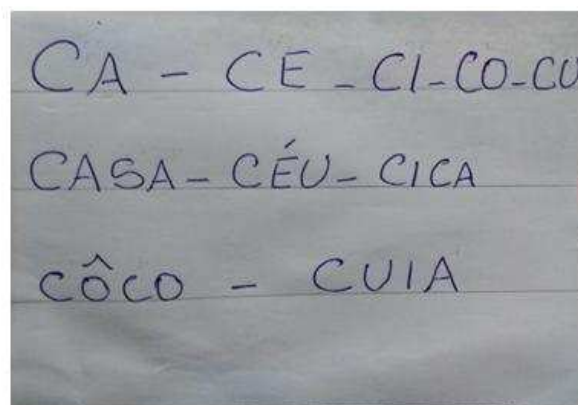 CA - CE - CI - CO - CU
CASA - CÉU - CICA
CÔCO - CUIA